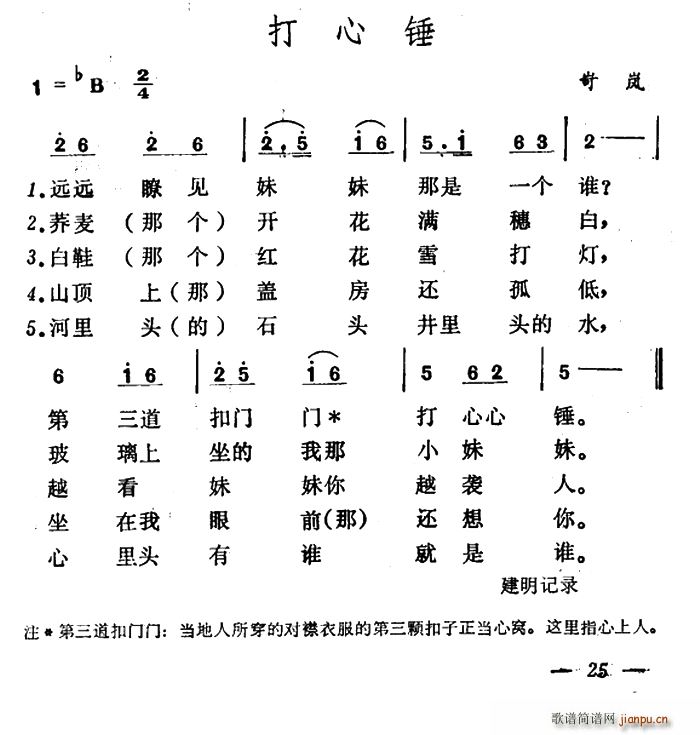 打心锤
1=♭B 2/4 岢岚
2̇6 2̇ 6 | 2̇.5̇ i̇6 | 5.i̇ 63 | 2̇ —— |
1.远远 瞭见 妹 妹 那是 一个 谁?
2.荞麦(那个)开 花 满 穗 白,
3.白鞋(那个)红 花 雪 打 灯,
4.山顶 上(那)盖 房 还 孤 低,
5.河里 头(的)石 头 井里 头的 水,
6 i̇6 | 2̇5 i̇6 | 5 62 | 5 —— ‖
第 三道 扣门 门* 打 心心 锤。
玻 璃上 坐的 我那 小 妹 妹。
越 看 妹 妹你 越 袭 人。
坐 在我 眼 前(那) 还 想 你。
心 里头 有 谁 就 是 谁。
建明记录
注*第三道扣门门:当地人所穿的对襟衣服的第三颗扣子正当心窝。这里指心上人。
— 25 —
歌谱简谱网
jianpu.cn